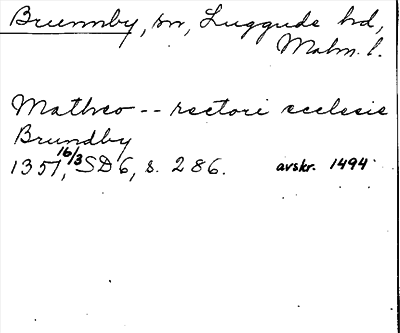 Brunnby, sn, Luggude hd,
Malm. l.
Matheo -- rectori ecclesie
Brundby
1357, 16/3 SD 6, s. 286. avskr. 1494